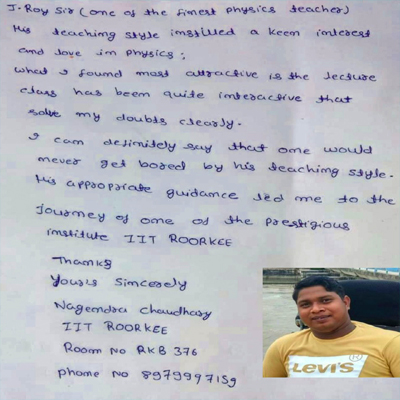 J. Roy Sir (one of the finest physics teacher)
His teaching style instilled a keen interest
and love in physics;
what I found most attractive is the lecture
class has been quite interactive that
solve my doubts clearly.
I can definitely say that one would
never get bored by his teaching style.
His appropriate guidance led me to the
Journey of one of the prestigious
institute IIT ROORKEE
Thanks
Yours Sincerely
Nagendra Chaudhary
IIT ROORKEE
Room No RKB 376
phone No 8979997159
LEVI'S
®